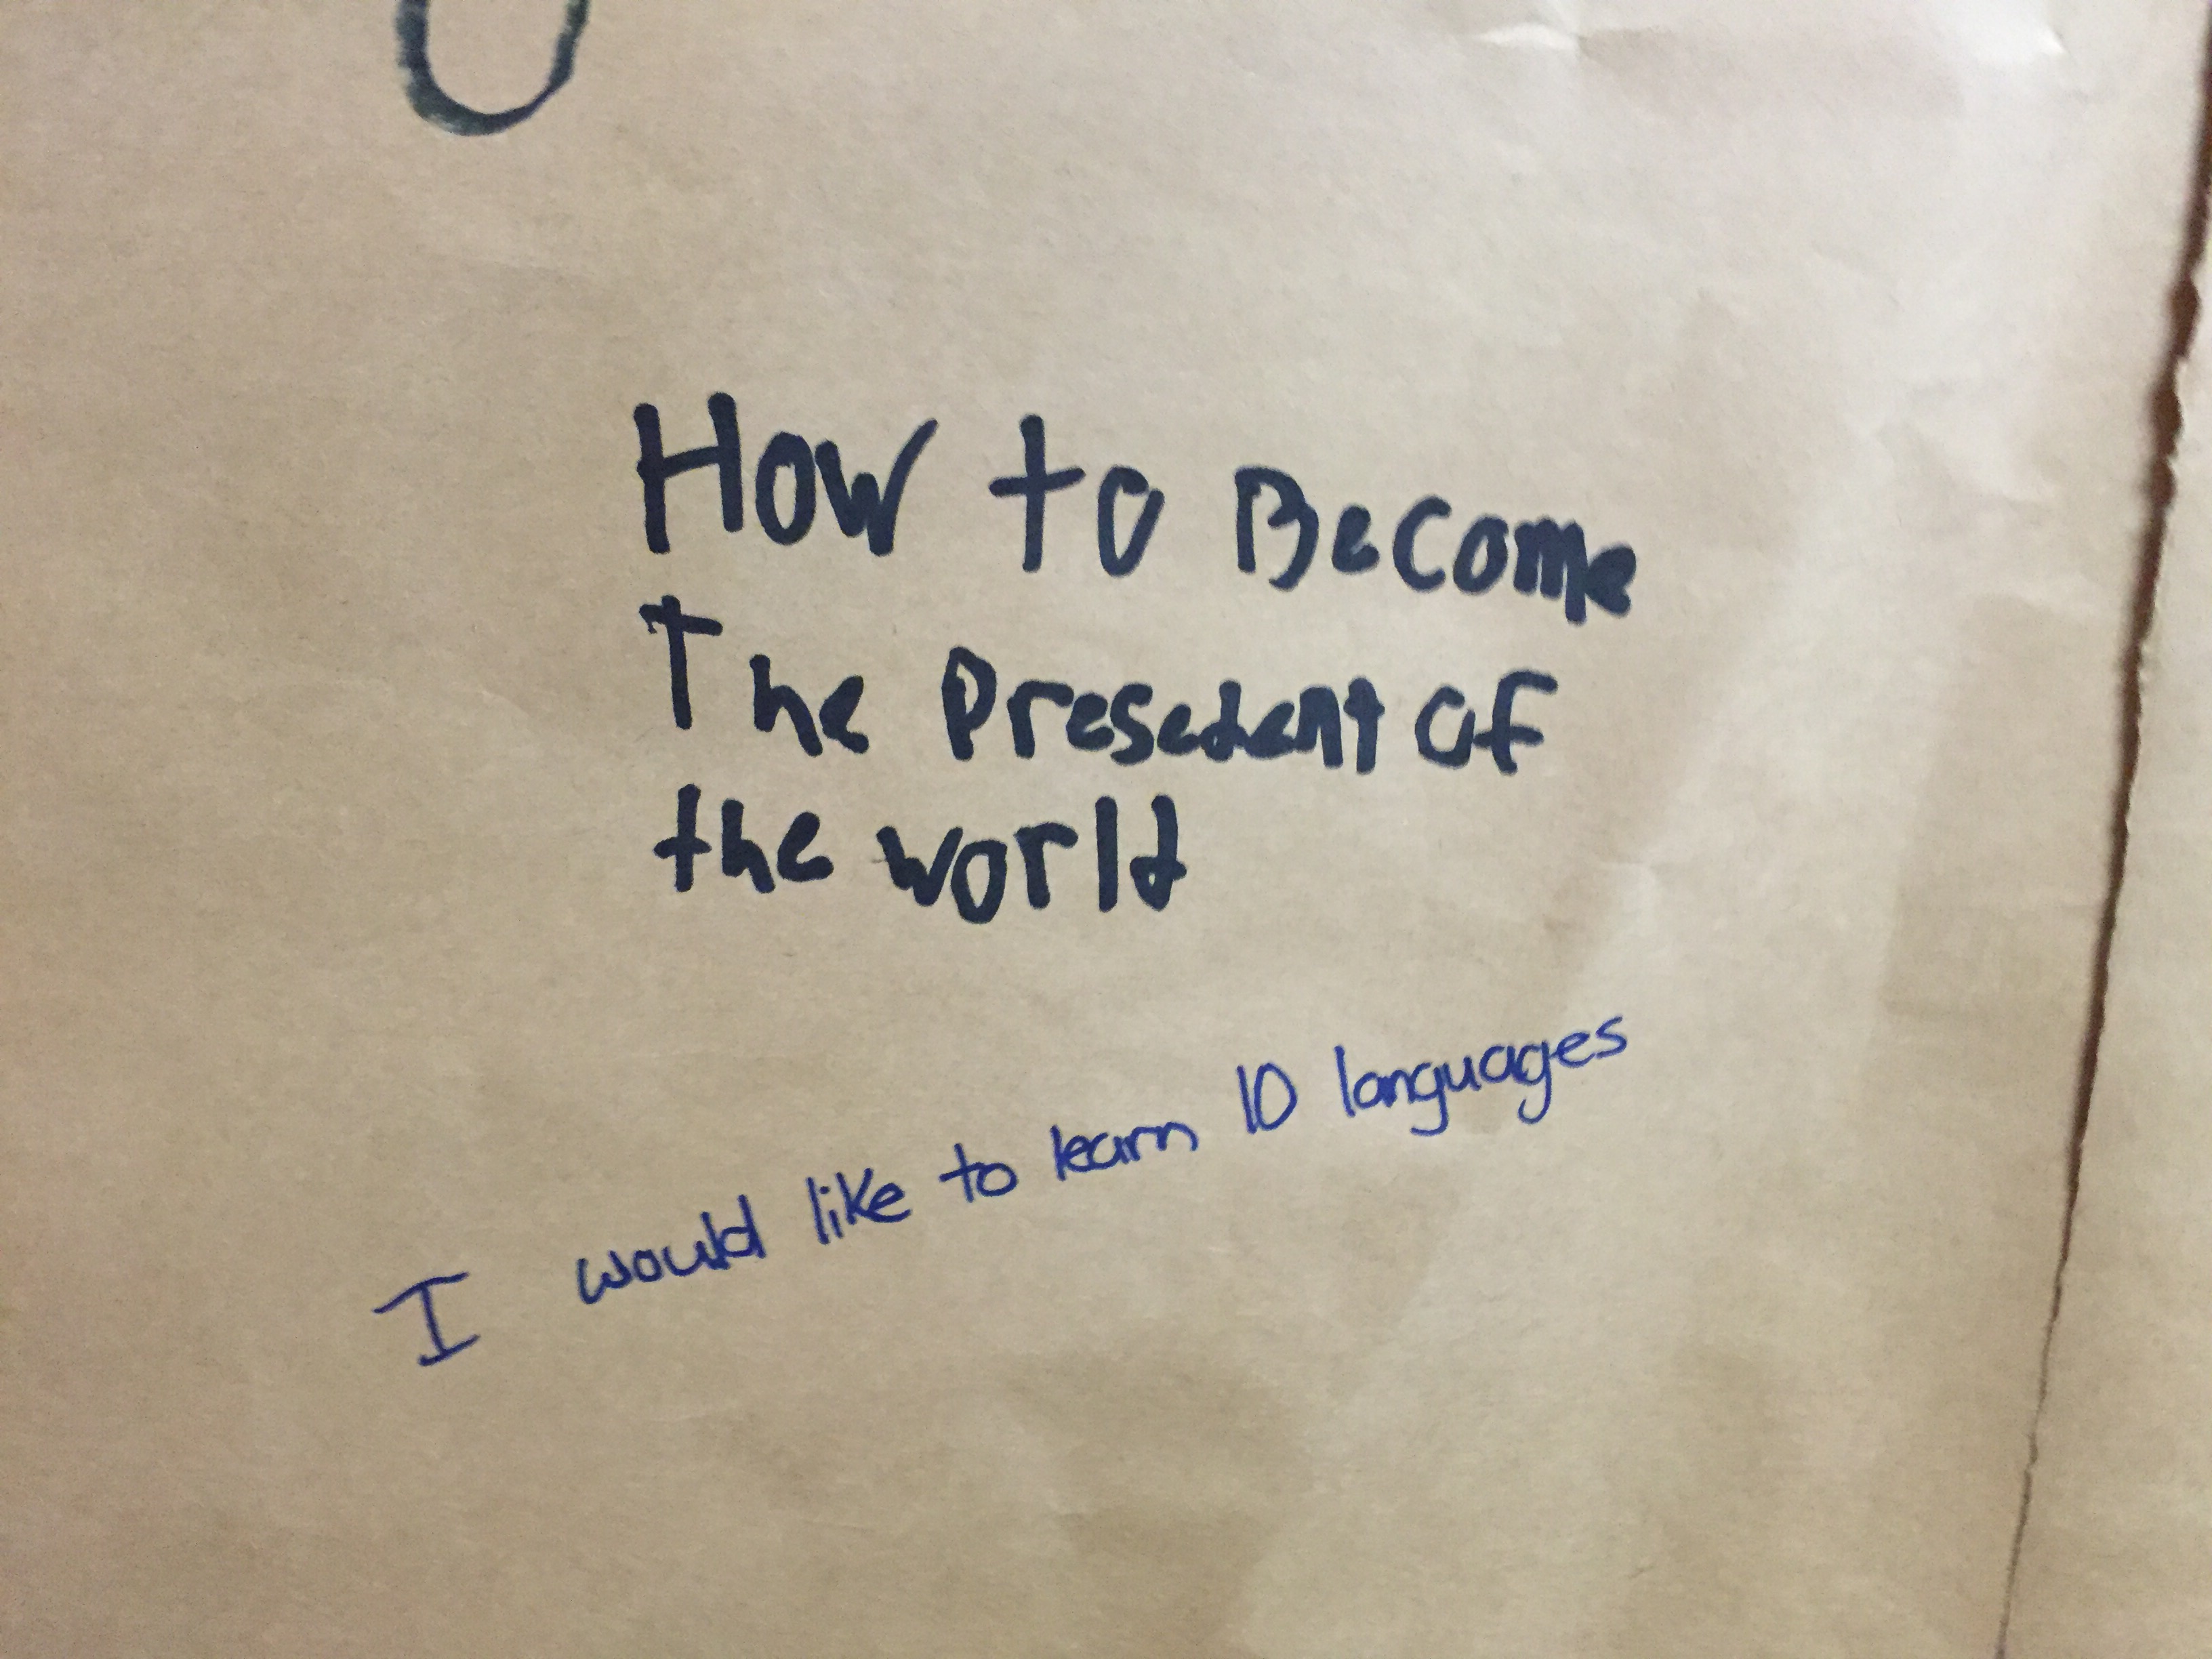 How to Become
The Presedent of
the world
I would like to learn 10 languages